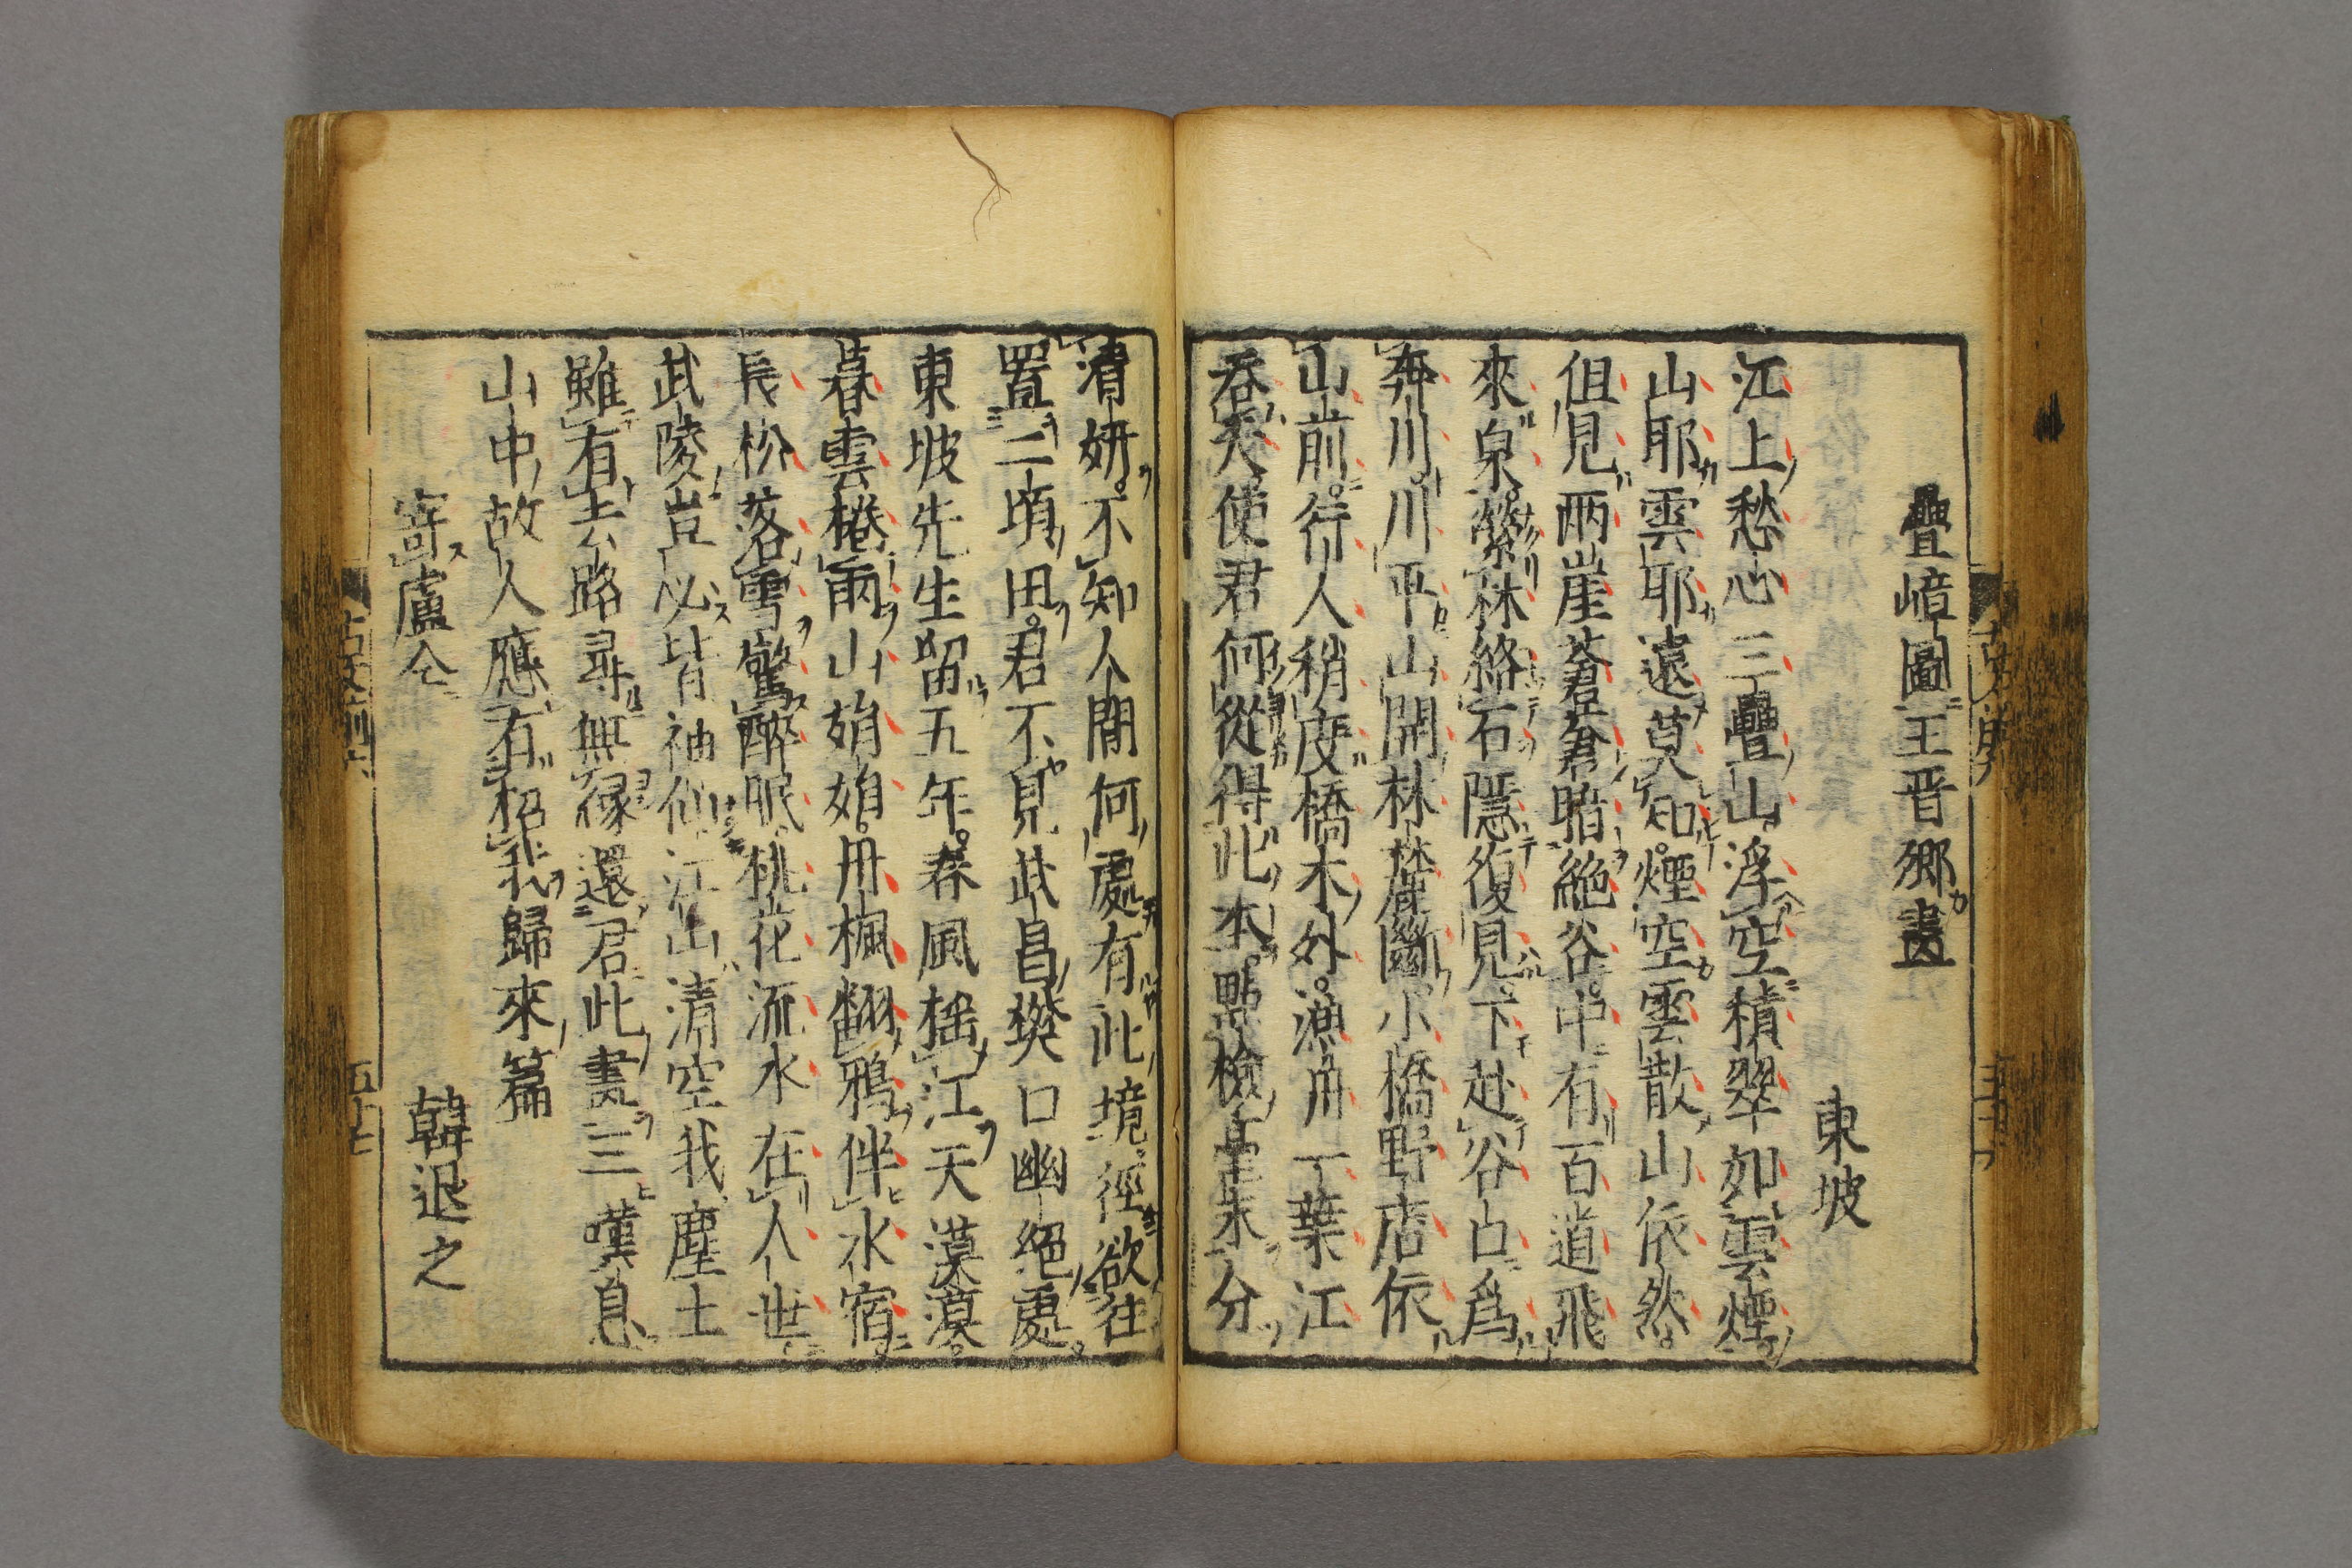 疊嶂圖王晋卿畫
東坡
江上愁心三疊山浮空積翠如雲煙
山耶雲耶遠莫知煙空雲散山依然
但見兩崖蒼蒼暗絶谷中有百道飛
來泉縈林絡石隱復見下赴谷口爲
奔川川平山開林麓斷小橋野店依
山前行人稍度橋木外漁舟一葉江
吞天使君何從得此本點檢毫末分
清妍不知人間何處有此境徑欲往
置二頃田君不見武昌樊口幽絶處
東坡先生留五年春風揺江天漠漠
暮雲捲雨山娟娟丹楓翻鴉伴水宿
長松落雪驚醉眠桃花流水在人世
武陵豈必皆神仙江山清空我塵土
雖有去路尋無縁還君此畫三嘆息
山中故人應有招我歸來篇
寄盧仝
韓退之